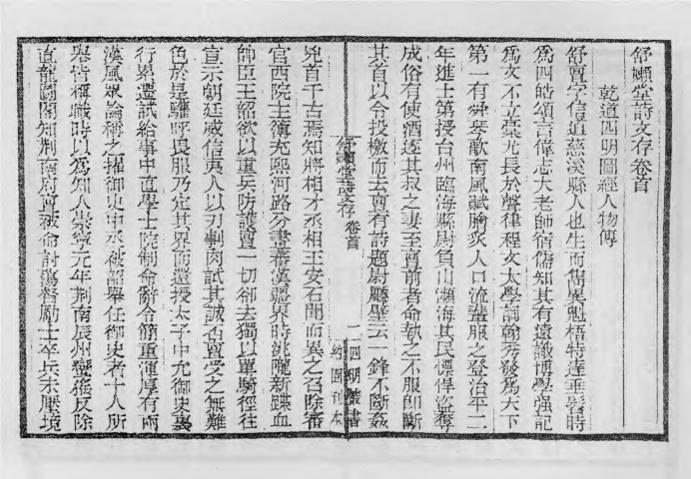 舒嬾堂詩文存卷首
乾道四明圖經人物傳
舒亶字信道慈溪縣人也生而儁異魁梧特達垂髫時
爲四皓頌言偉志大老師宿儒知其有遠識博學强記
爲文不立藁尤長於聲律程文太學詞翰秀發爲天下
第一有舜琴歌南風賦膾炙人口流輩服之登治平二
年進士第授台州臨海縣尉負山瀕海其民慓悍盜奪
成俗有使酒逐其叔之妻至亶前者命執之不服卽斷
其首以令投檄而去亶有詩題尉廳壁云一鋒不斷姦
舒嬾堂詩文存 卷首 一 四明叢書
約園刊本
兇首千古焉知將相才丞相王安石聞而異之召除審
官西院主簿充熙河路分畫蕃漢疆界時洮隴新蹀血
帥臣王韶欲以重兵防護亶一切卻去獨以單騎徑往
宣示朝廷威信夷人以刃刲肉試其誠否亶受之無難
色於是驩呼畏服乃定其界而還授太子中允御史裏
行累遷試給事中直學士院制命辭令簡重渾厚有兩
漢風衆論稱之擢御史中丞被詔舉任御史者十人所
舉皆稱職時以爲知人崇寧元年荆南辰州蠻猺反除
直龍圖閣知荆南府亶被命討蕩督勵士卒兵未壓境